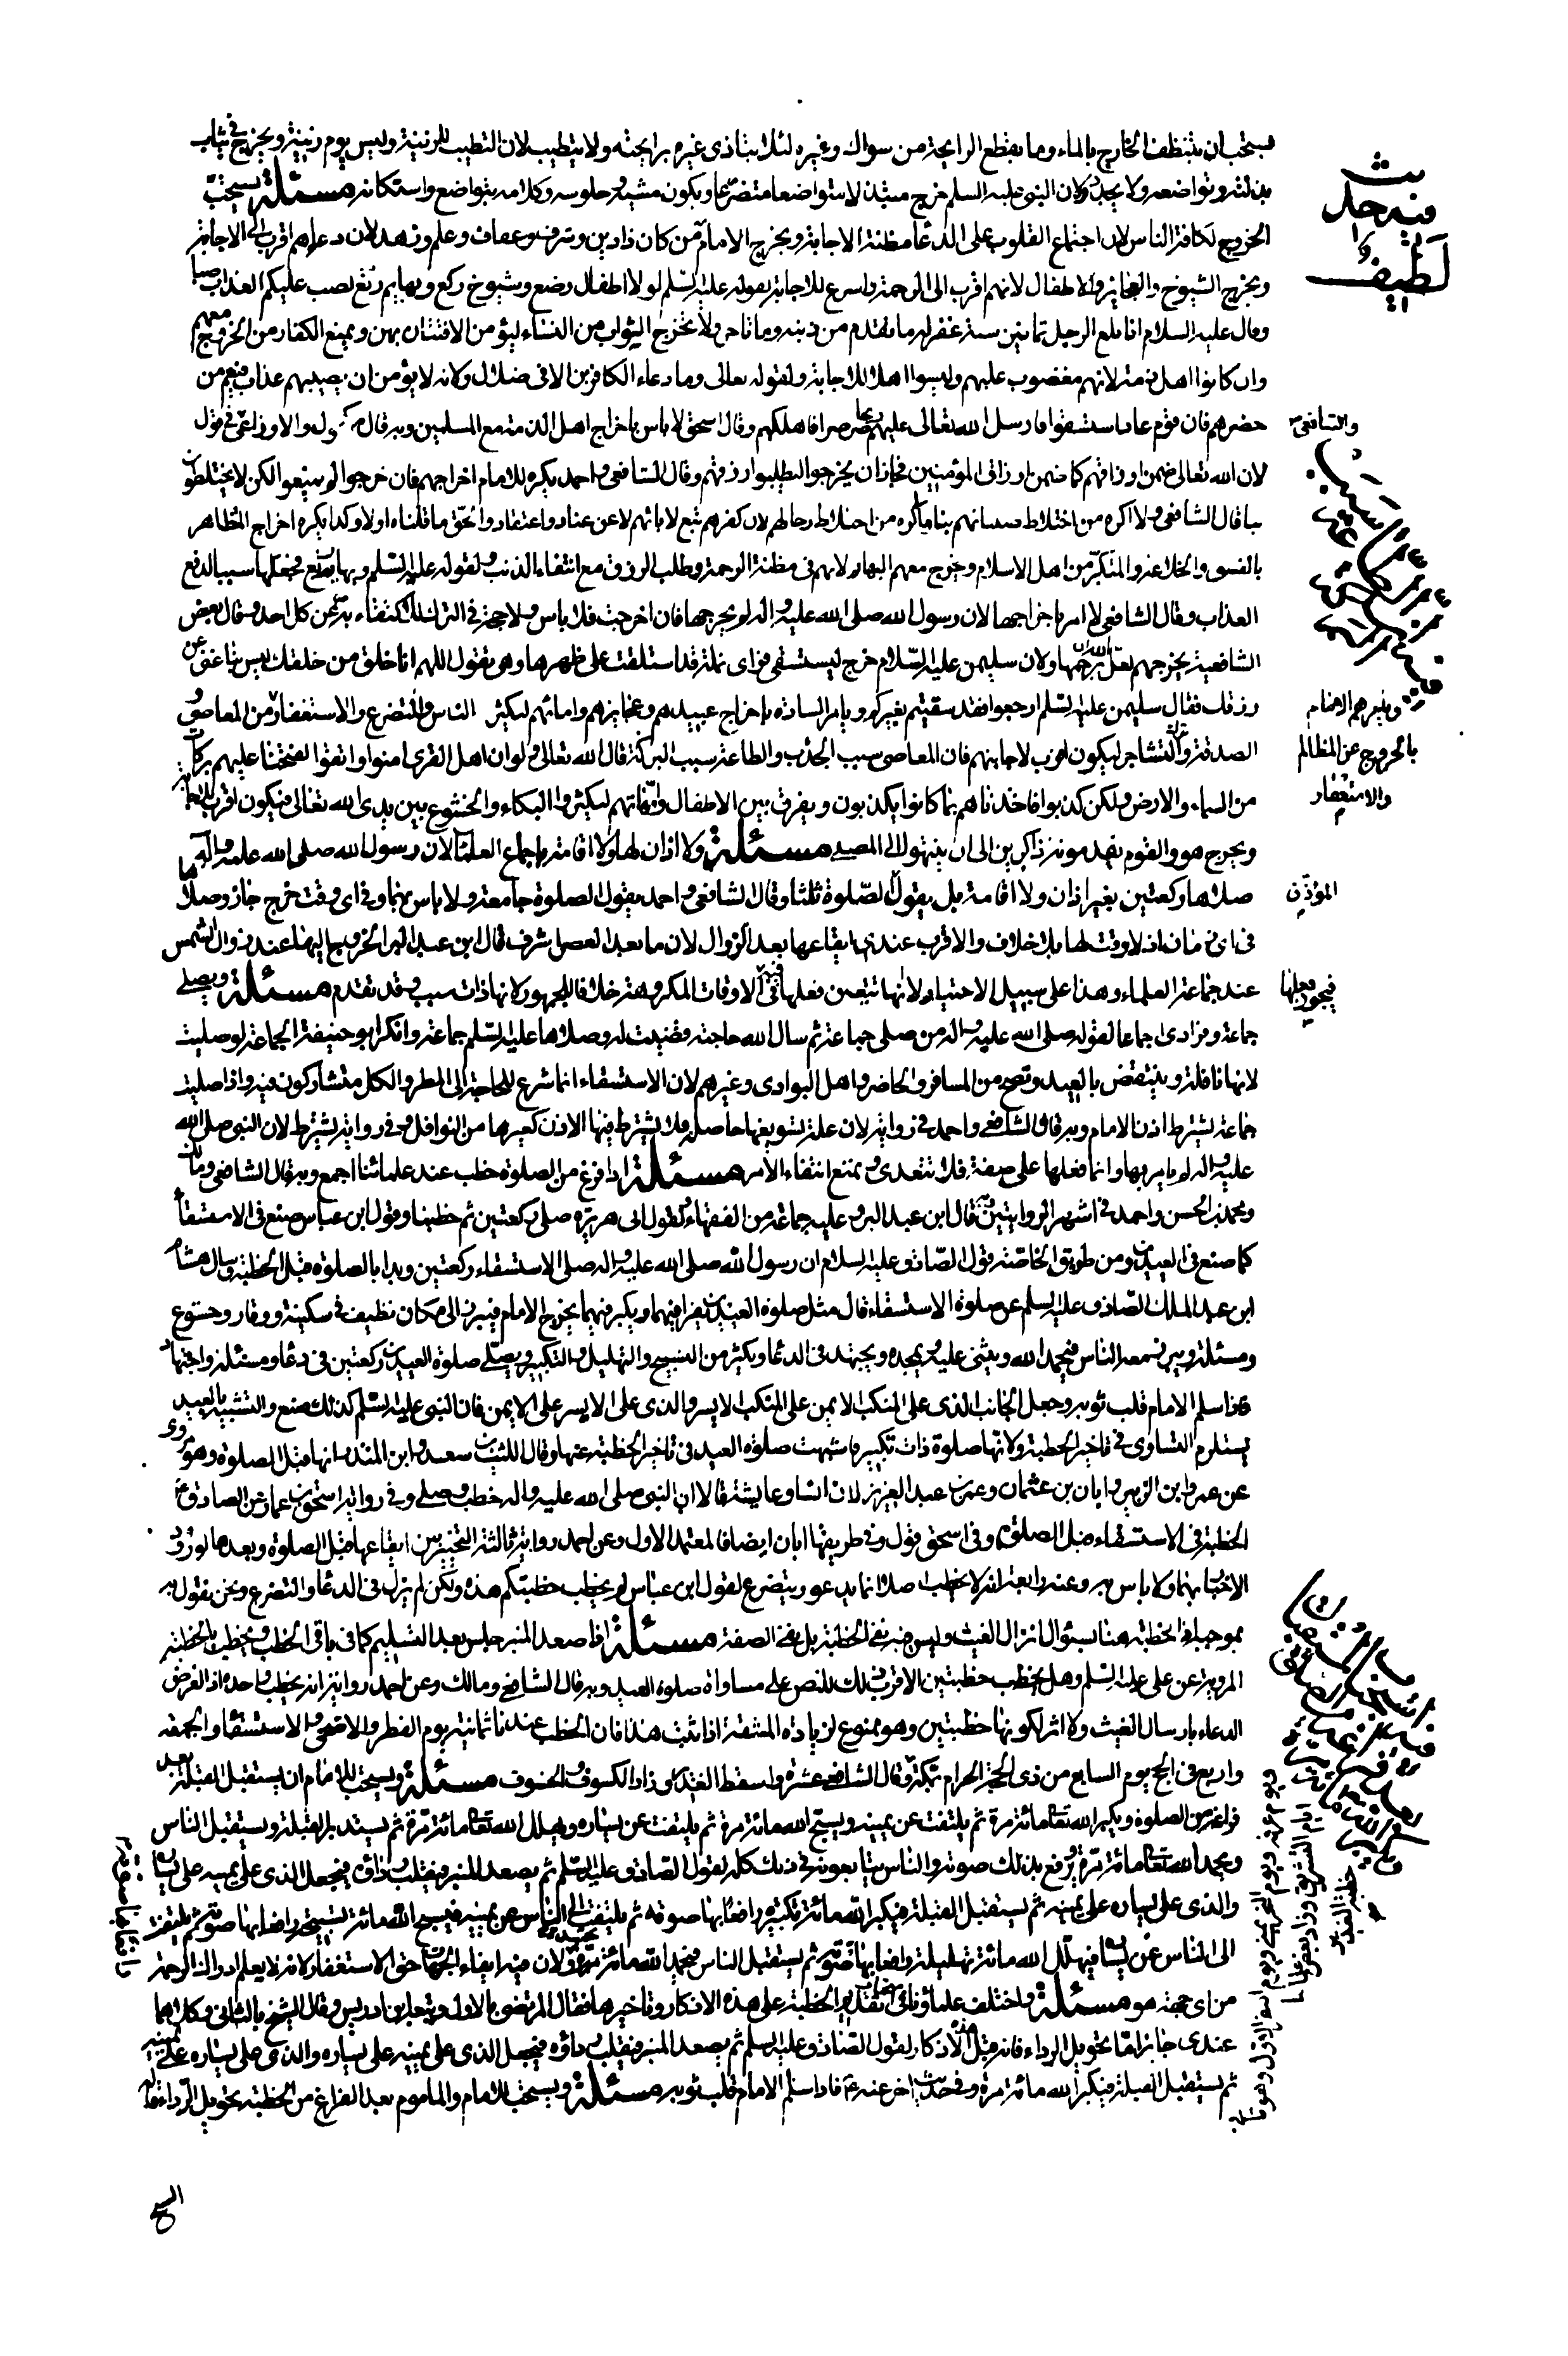 يستحب ان يتنظف الخارج بالماء وما يقطع الرايحة من سواك وغيره لئلا يتاذى غيره برايحته ولا يتطيب لان التطيب للزينة وليس يوم زينة ويخرج في ثياب
بذلته وتواضعه ولا يجدد ولان النبي عليه السلم خرج مبتذلا متواضعا متضرعا ويكون مشيه وجلوسه وكلامه بتواضع واستكانة مسئلة يستحب
الخروج لكافة الناس لان اجتماع القلوب على الدعا مظنة الاجابة ويخرج الامام من كان ذا دين وشرف وعفاف وعلم وزهد لان دعاهم اقرب الى الاجابة
ويخرج الشيوخ والعجايز والاطفال لانهم اقرب الى الرحمة واسرع للاجابة لقوله عليه السلم لولا اطفال رضع وشيوخ ركع وبهايم رتع لصب عليكم العذاب صبا
وقال عليه السلام اذا بلغ الرجل ثمانين سنة غفر له ما تقدم من ذنبه وما تاخر ولا تخرج الشواب من النساء ليؤمن الافتتان بهن ويمنع الكفار من الخروج معهم
وان كانوا اهل ذمة لانهم مغضوب عليهم وليسوا اهلا للاجابة ولقوله تعالى وما دعاء الكافرين الا في ضلال ولانه لا يؤمن ان يصيبهم عذاب فيعم من
حضرهم فان قوم عاد استسقوا فارسل الله تعالى عليهم ريحا صرصرا فاهلكهم وقال اسحق لا باس باخراج اهل الذمة مع المسلمين وبه قال مكحول والاوزاعي في قول
لان الله تعالى ضمن ارزاقهم كما ضمن ارزاق المؤمنين فجاز ان يخرجوا ليطلبوا رزقهم وقال الشافعي واحمد يكره للامام اخراجهم فان خرجوا لم يمنعوا لكن لا يختلطون
بنا قال الشافعي ولا اكره من اختلاط صبيانهم بنا ما اكره من اختلاط رجالهم لان كفرهم تبع لابائهم لا عن عناد واعتقاد والحق ما قلناه اولا وكذا يكره اخراج المتظاهر
بالفسوق والخلاعة والمنكر من اهل الاسلام ويخرج معهم البهايم لانهم في مظنة الرحمة وطلب الرزق مع انتفاء الذنب ولقوله عليه السلم وبهايم رتع فجعلها سببا لدفع
العذاب وقال الشافعي لا امر باخراجها لان رسول الله صلى الله عليه واله لم يخرجها فان اخرجت فلا باس ولا حجة في الترك لاكتفاء به عن كل احد وقال بعض
الشافعية يخرجهم لعل الله ان يرحمها ولان سليمن عليه السلام خرج ليستسقي فراى نملة قد استلقت على ظهرها وهي تقول اللهم انا خلق من خلقك ليس بنا غنى عن
رزقك فقال سليمن عليه السلم ارجعوا فقد سقيتم بغيركم ويامر السادة باخراج عبيدهم وعجايزهم وامائهم ليكثر الناس والتضرع والاستغفار من المعاصي و
الصدقة وترك التشاجر ليكون اقرب لاجابتهم فان المعاصي سبب الجدب والطاعة سبب البركة قال الله تعالى ولو ان اهل القرى امنوا واتقوا لفتحنا عليهم بركات
من السماء والارض ولكن كذبوا فاخذناهم بما كانوا يكذبون ويفرق بين الاطفال وامهاتهم ليكثروا البكاء والخشوع بين يدى الله تعالى فيكون اقرب للاجابة
ويخرج هو والقوم يقدمونه ذاكرين الى ان ينتهوا الى المصلى مسئلة ولا اذان لها ولا اقامة باجماع العلماء لان رسول الله صلى الله عليه واله
صلاها ركعتين بغير اذان ولا اقامة بل يقول الصلوة ثلثا وقال الشافعي واحمد يقول الصلوة جامعة ولا باس بهما وفي اى وقت خرج جاز وصلا
في اى زمان اذ لا وقت لها بلا خلاف والاقرب عندى ايقاعها بعد الزوال لان ما بعد العصر اشرف قال ابن عبد البر الخروج اليها عند زوال الشمس
عند جماعة العلماء وهذا على سبيل الاختيار لا انها تتعين فعلها فيه في الاوقات المكروهة خلافا للجمهور لانها ذات سبب وقد تقدم مسئلة ويصلى
جماعة وفرادى اجماعا لقوله صلى الله عليه واله من صلى جماعة ثم سال الله حاجته قضيت له وصلاها عليه السلم جماعة وانكر ابو حنيفة الجماعة لو صليت
لانها نافلة وينتقض بالعيد وتصح من المسافر والحاضر واهل البوادى وغيرهم لان الاستسقاء انما شرع للحاجة الى المطر والكل متشاركون فيه واذا صليت
جماعة لم يشترط اذن الامام وبه قال الشافعي واحمد في رواية لان علة تسويغها حاصلة فلا يشترط فيها الاذن كغيرها من النوافل وفي رواية يشترط لان النبي صلى الله
عليه واله لم يامر بها وانما فعلها على صفة فلا تتعدى ويمنع انتفاء الامر مسئلة اذا فرغ من الصلوة خطب عند علمائنا اجمع وبه قال الشافعي ومالك
ومحمد بن الحسن واحمد في اشهر الروايتين قال ابن عبد البر وعليه جماعة من الفقهاء لقول ابي هريرة صلى ركعتين ثم خطبنا وقول ابن عباس صنع في الاستسقا
كما صنع في العيدين ومن طريق الخاصة قول الصادق عليه السلام ان رسول الله صلى الله عليه واله صلى الاستسقاء ركعتين وبدا بالصلوة قبل الخطبة وسال هشام
ابن عبد الملك الصادق عليه السلم عن صلوة الاستسقاء قال مثل صلوة العيدين يقرا فيهما ويكبر فيهما يخرج الامام فيبرز الى مكان نظيف في سكينة ووقار وخشوع
ومسئلة ويبرز معه الناس فيحمد الله ويثني عليه ويمجده ويجتهد في الدعا ويكثر من التسبيح والتهليل والتكبير ويصلي صلوة العيدين ركعتين في دعا ومسئلة واجتهاد
فاذا سلم الامام قلب ثوبه وجعل الجانب الذى على المنكب الايمن على المنكب الايسر والذى على الايسر على الايمن فان النبي عليه السلم كذلك صنع والتشبيه بالعيد
يستلزم التساوى في تاخير الخطبة ولانها صلوة ذات تكبير فاشبهت صلوة العيد في تاخير الخطبة عنها وقال الليث بن سعد وابن المنذر انها قبل الصلوة وهو مروى
عن عمر وابن الزبير وابان بن عثمان وعمر بن عبد العزيز لان انسا وعايشة قالا ان النبي صلى الله عليه واله خطب وصلى وفي رواية اسحق بن عمار عن الصادق ع
الخطبة في الاستسقاء قبل الصلوة وفي اسحق قول وفي طريقها ابان ايضا فالمعتمد الاول وعن احمد رواية ثالثة التخيير بين ايقاعها قبل الصلوة وبعدها لورود
الاخبار بهما ولا باس به وعنه رابعة انه لا يخطب اصلا انما يدعو ويتضرع لقول ابن عباس لم يخطب خطبتكم هذه ولكن لم يزل في الدعا والتضرع ونحن نقول به
بموجبه فان الخطبة هنا لسؤال انزال الغيث وليس فيه نفي الخطبة بل نفي الصفة مسئلة اذا صعد المنبر جلس بعد التسليم كما في باقي الخطب ويخطب بالخطبة
المروية عن علي عليه السلم وهل يخطب خطبتين الاقرب ذلك للنص على مساواة صلوة العيد وبه قال الشافعي ومالك وعن احمد رواية انه يخطب واحدة اذ الغرض
الدعاء بارسال الغيث ولا اثر لكونها خطبتين وهو ممنوع لزيادة المشقة اذا ثبت هذا فان الخطب عندنا ثمانية يوم الفطر والاضحى والاستسقا والجمعة
واربع في الحج يوم السابع من ذى الحجة الحرام بمكة وقال الشافعي عشرة واسقط الغدير وزاد الكسوف والخسوف مسئلة ويستحب للامام ان يستقبل القبلة بعد
فراغه من الصلوة ويكبر الله تعالى مائة مرة ثم يلتفت عن يمينه ويسبح الله مائة مرة ثم يلتفت عن يساره ويهلل الله تعالى مائة مرة ثم يستدبر القبلة ويستقبل الناس
ويحمد الله تعالى مائة مرة يرفع بذلك صوته والناس يتابعونه في ذلك كله لقول الصادق عليه السلم ثم يصعد المنبر فيقلب رداؤه فيجعل الذى على يمينه على يساره
والذى على يساره على يمينه ثم يستقبل القبلة فيكبر الله مائة تكبيرة رافعا بها صوته ثم يلتفت الى الناس عن يمينه فيسبح الله مائة تسبيحة رافعا بها صوته ثم يلتفت
الى الناس عن يساره فيهلل الله مائة تهليلة رافعا بها صوته ثم يستقبل الناس فيحمد الله مائة تحميدة ولان فيه ايفاء الجهات حق الاستغفار لانه لا يعلم ادرار الرحمة
من اى جهة هو مسئلة واختلف علماؤنا في تقديم الخطبة على هذه الاذكار وتاخيرها فقال المرتضى بالاول وتبعه ابن ادريس وقال الشيخ بالثاني وكلاهما
عندى جايز اما تحويل الرداء فانه قبل هذه الاذكار لقول الصادق عليه السلم ثم يصعد المنبر فيقلب رداؤه فيجعل الذى على يمينه على يساره والذى على يساره على يمينه
ثم يستقبل القبلة فيكبر الله مائة مرة وفي حديث اخر عنه ع فاذا سلم الامام قلب ثوبه مسئلة ويستحب للامام والماموم بعد الفراغ من الخطبة تحويل الرداء قاله
الشيخ
فيه حديث
لطيف
والشافعي
ويامرهم الامام
بالخروج عن المظالم
والاستغفار
المؤذن
فيجوز فعلها